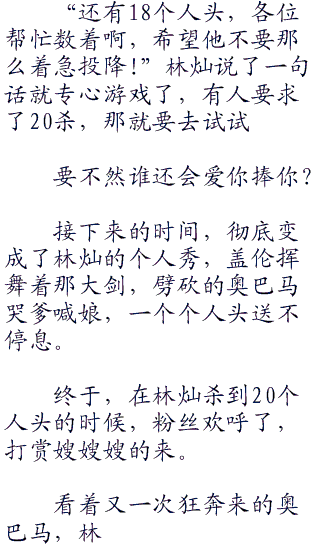 “还有18个人头，各位
帮忙数着啊，希望他不要那
么着急投降！”林灿说了一句
话就专心游戏了，有人要求
了20杀，那就要去试试
要不然谁还会爱你捧你？
接下来的时间，彻底变
成了林灿的个人秀，盖伦挥
舞着那大剑，劈砍的奥巴马
哭爹喊娘，一个个人头送不
停息。
终于，在林灿杀到20个
人头的时候，粉丝欢呼了，
打赏嫂嫂嫂的来。
看着又一次狂奔来的奥
巴马，林